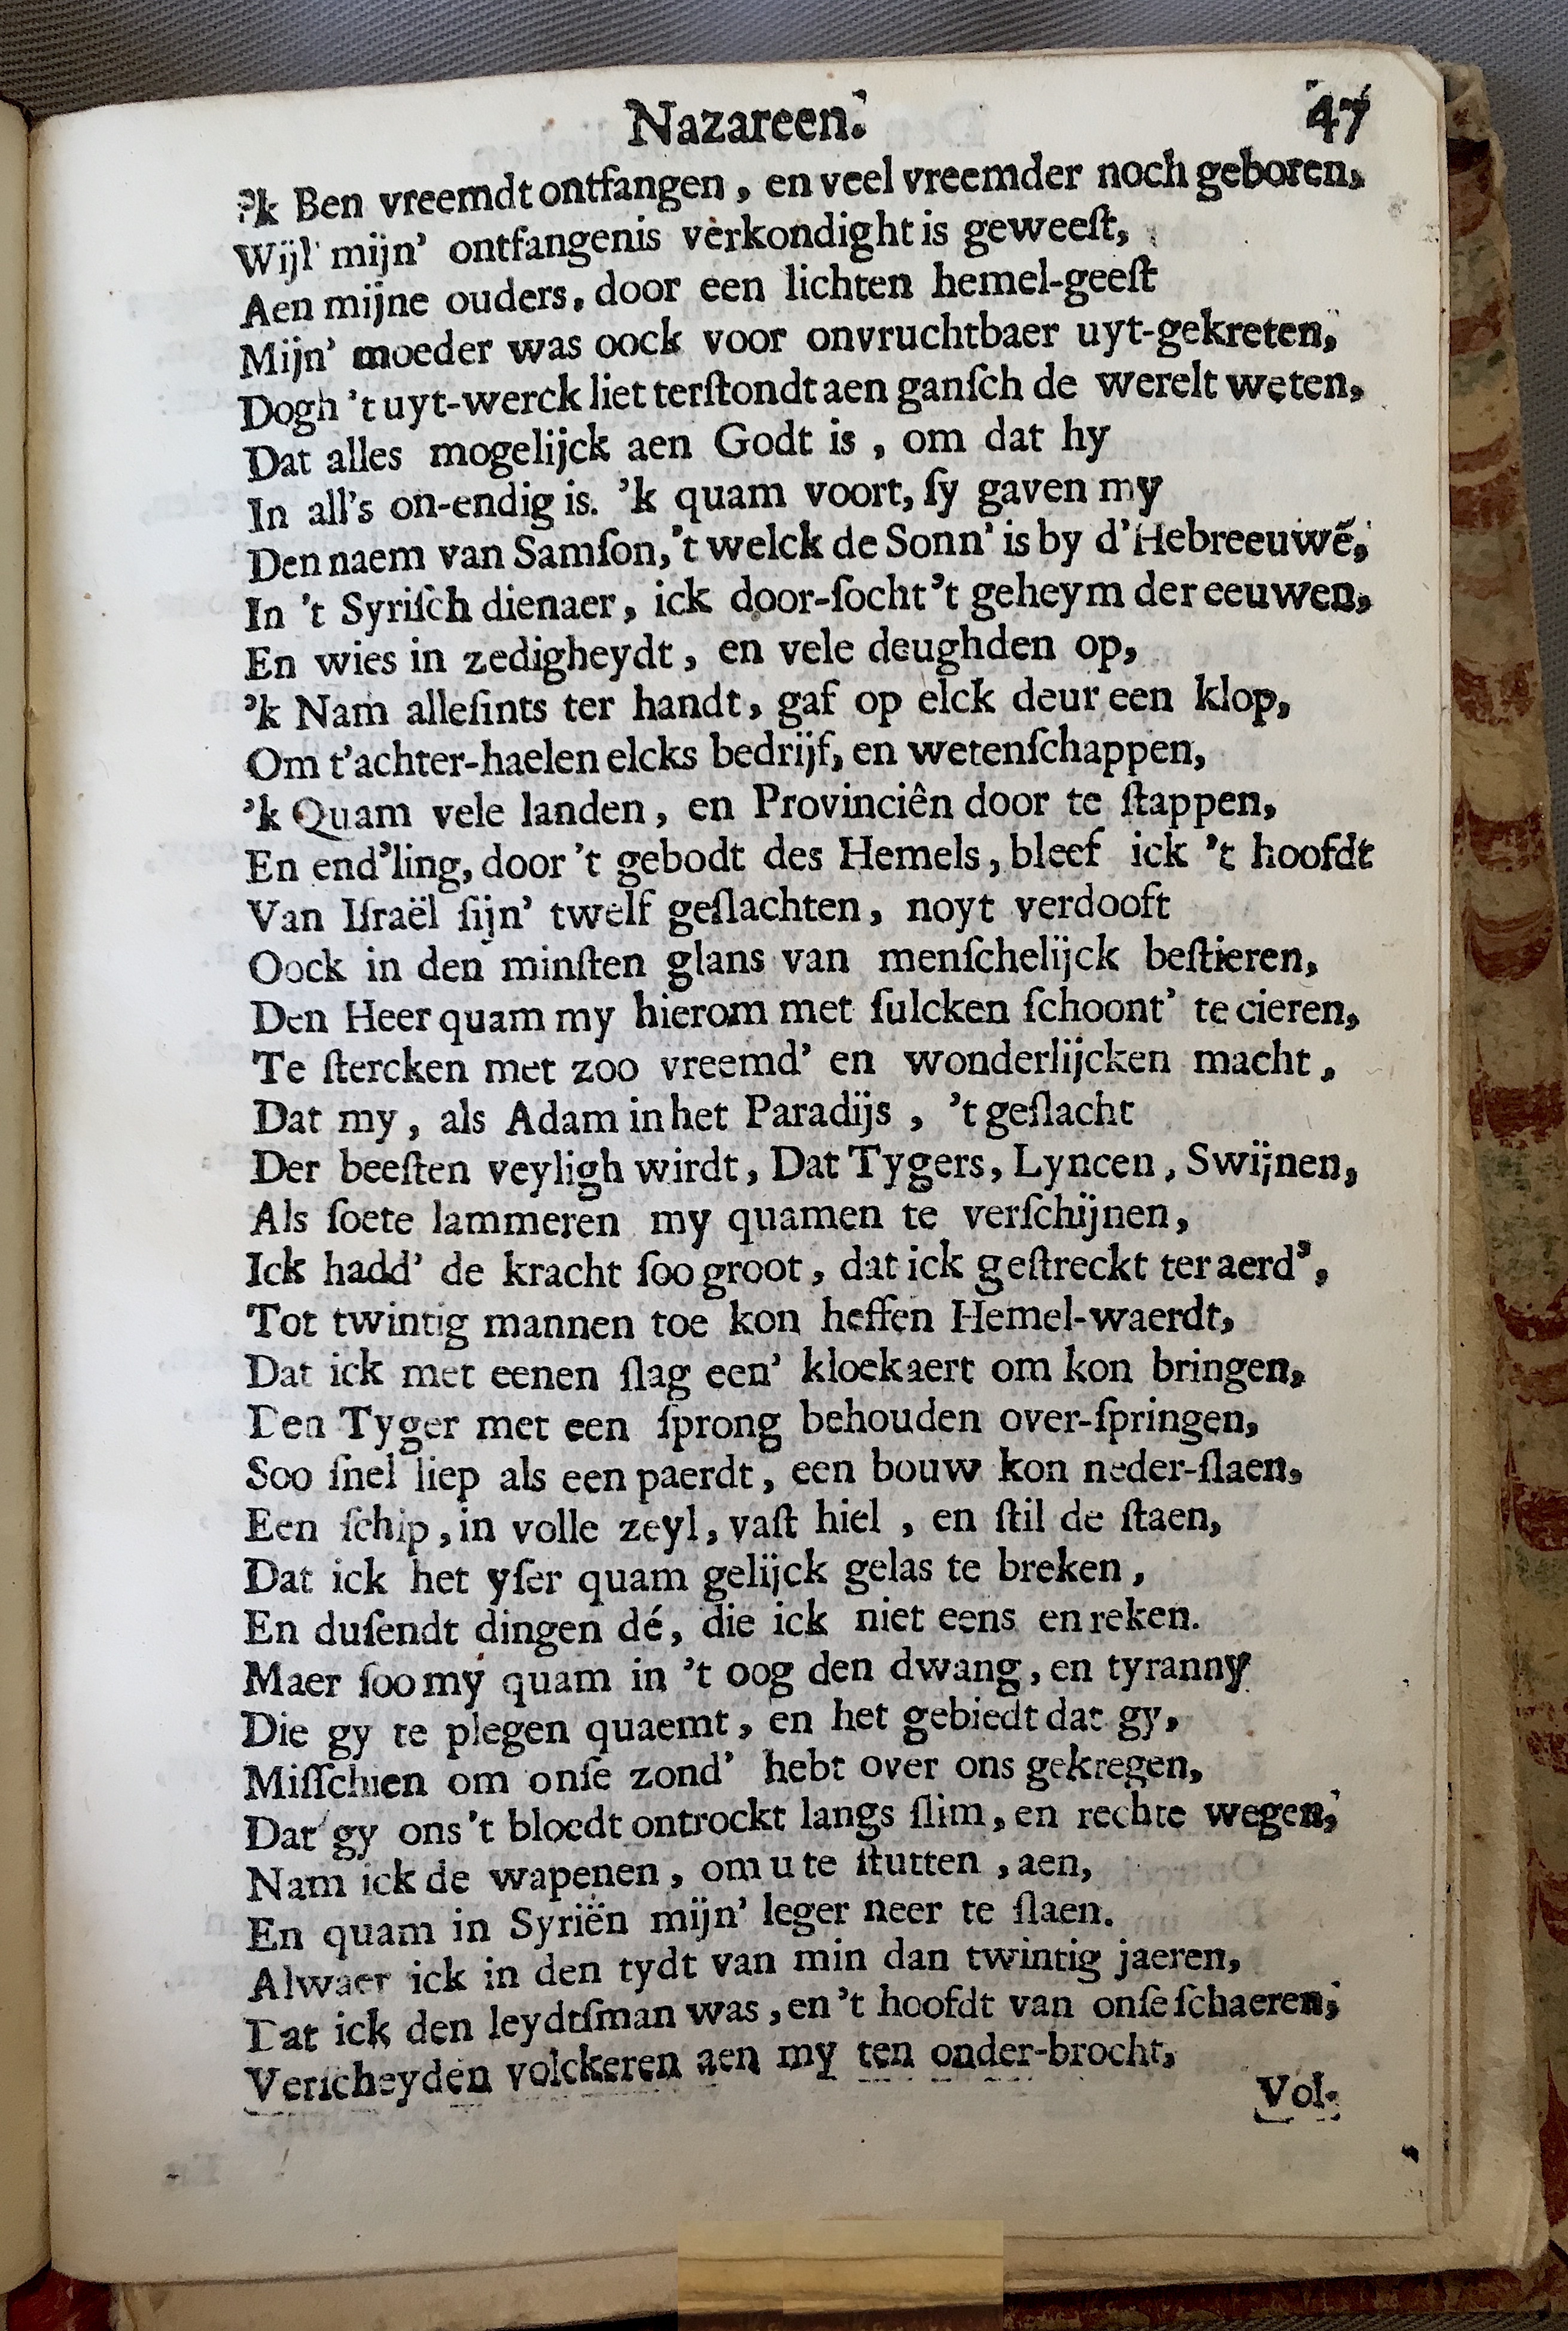 Nazareen. 47
'k Ben vreemdt ontfangen, en veel vreemder noch geboren,
Wijl mijn' ontfangenis verkondight is geweeſt,
Aen mijne ouders, door een lichten hemel-geeſt
Mijn' moeder was oock voor onvruchtbaer uyt-gekreten,
Dogh 't uyt-werck liet terſtondt aen ganſch de werelt weten,
Dat alles mogelijck aen Godt is, om dat hy
In all's on-endig is. 'k quam voort, ſy gaven my
Den naem van Samſon, 't welck de Sonn' is by d'Hebreeuwẽ,
In 't Syriſch dienaer, ick door-ſocht 't geheym der eeuwen,
En wies in zedigheydt, en vele deughden op,
'k Nam alleſints ter handt, gaf op elck deur een klop,
Om t'achter-haelen elcks bedrijf, en wetenſchappen,
'k Quam vele landen, en Provinciên door te ſtappen,
En end'ling, door 't gebodt des Hemels, bleef ick 't hoofdt
Van Iſraël ſijn' twelf geſlachten, noyt verdooft
Oock in den minſten glans van menſchelijck beſtieren,
Den Heer quam my hierom met ſulcken ſchoont' te cieren,
Te ſtercken met zoo vreemd' en wonderlijcken macht,
Dat my, als Adam in het Paradijs, 't geſlacht
Der beeſten veyligh wirdt, Dat Tygers, Lyncen, Swijnen,
Als ſoete lammeren my quamen te verſchijnen,
Ick hadd' de kracht ſoo groot, dat ick geſtreckt ter aerd',
Tot twintig mannen toe kon heffen Hemel-waerdt,
Dat ick met eenen ſlag een' kloekaert om kon bringen,
Den Tyger met een ſprong behouden over-ſpringen,
Soo ſnel liep als een paerdt, een bouw kon neder-ſlaen,
Een ſchip, in volle zeyl, vaſt hiel, en ſtil de ſtaen,
Dat ick het yſer quam gelijck gelas te breken,
En duſendt dingen dé, die ick niet eens en reken.
Maer ſoo my quam in 't oog den dwang, en tyranny
Die gy te plegen quaemt, en het gebiedt dat gy,
Miſſchien om onſe zond' hebt over ons gekregen,
Dat gy ons 't bloedt ontrockt langs ſlim, en rechte wegen,
Nam ick de wapenen, om u te ſtutten, aen,
En quam in Syriën mijn' leger neer te ſlaen.
Alwaer ick in den tydt van min dan twintig jaeren,
Dat ick den leydtſman was, en 't hoofdt van onſe ſchaeren,
Verſcheyden volckeren aen my ten onder-brocht,
Vol-